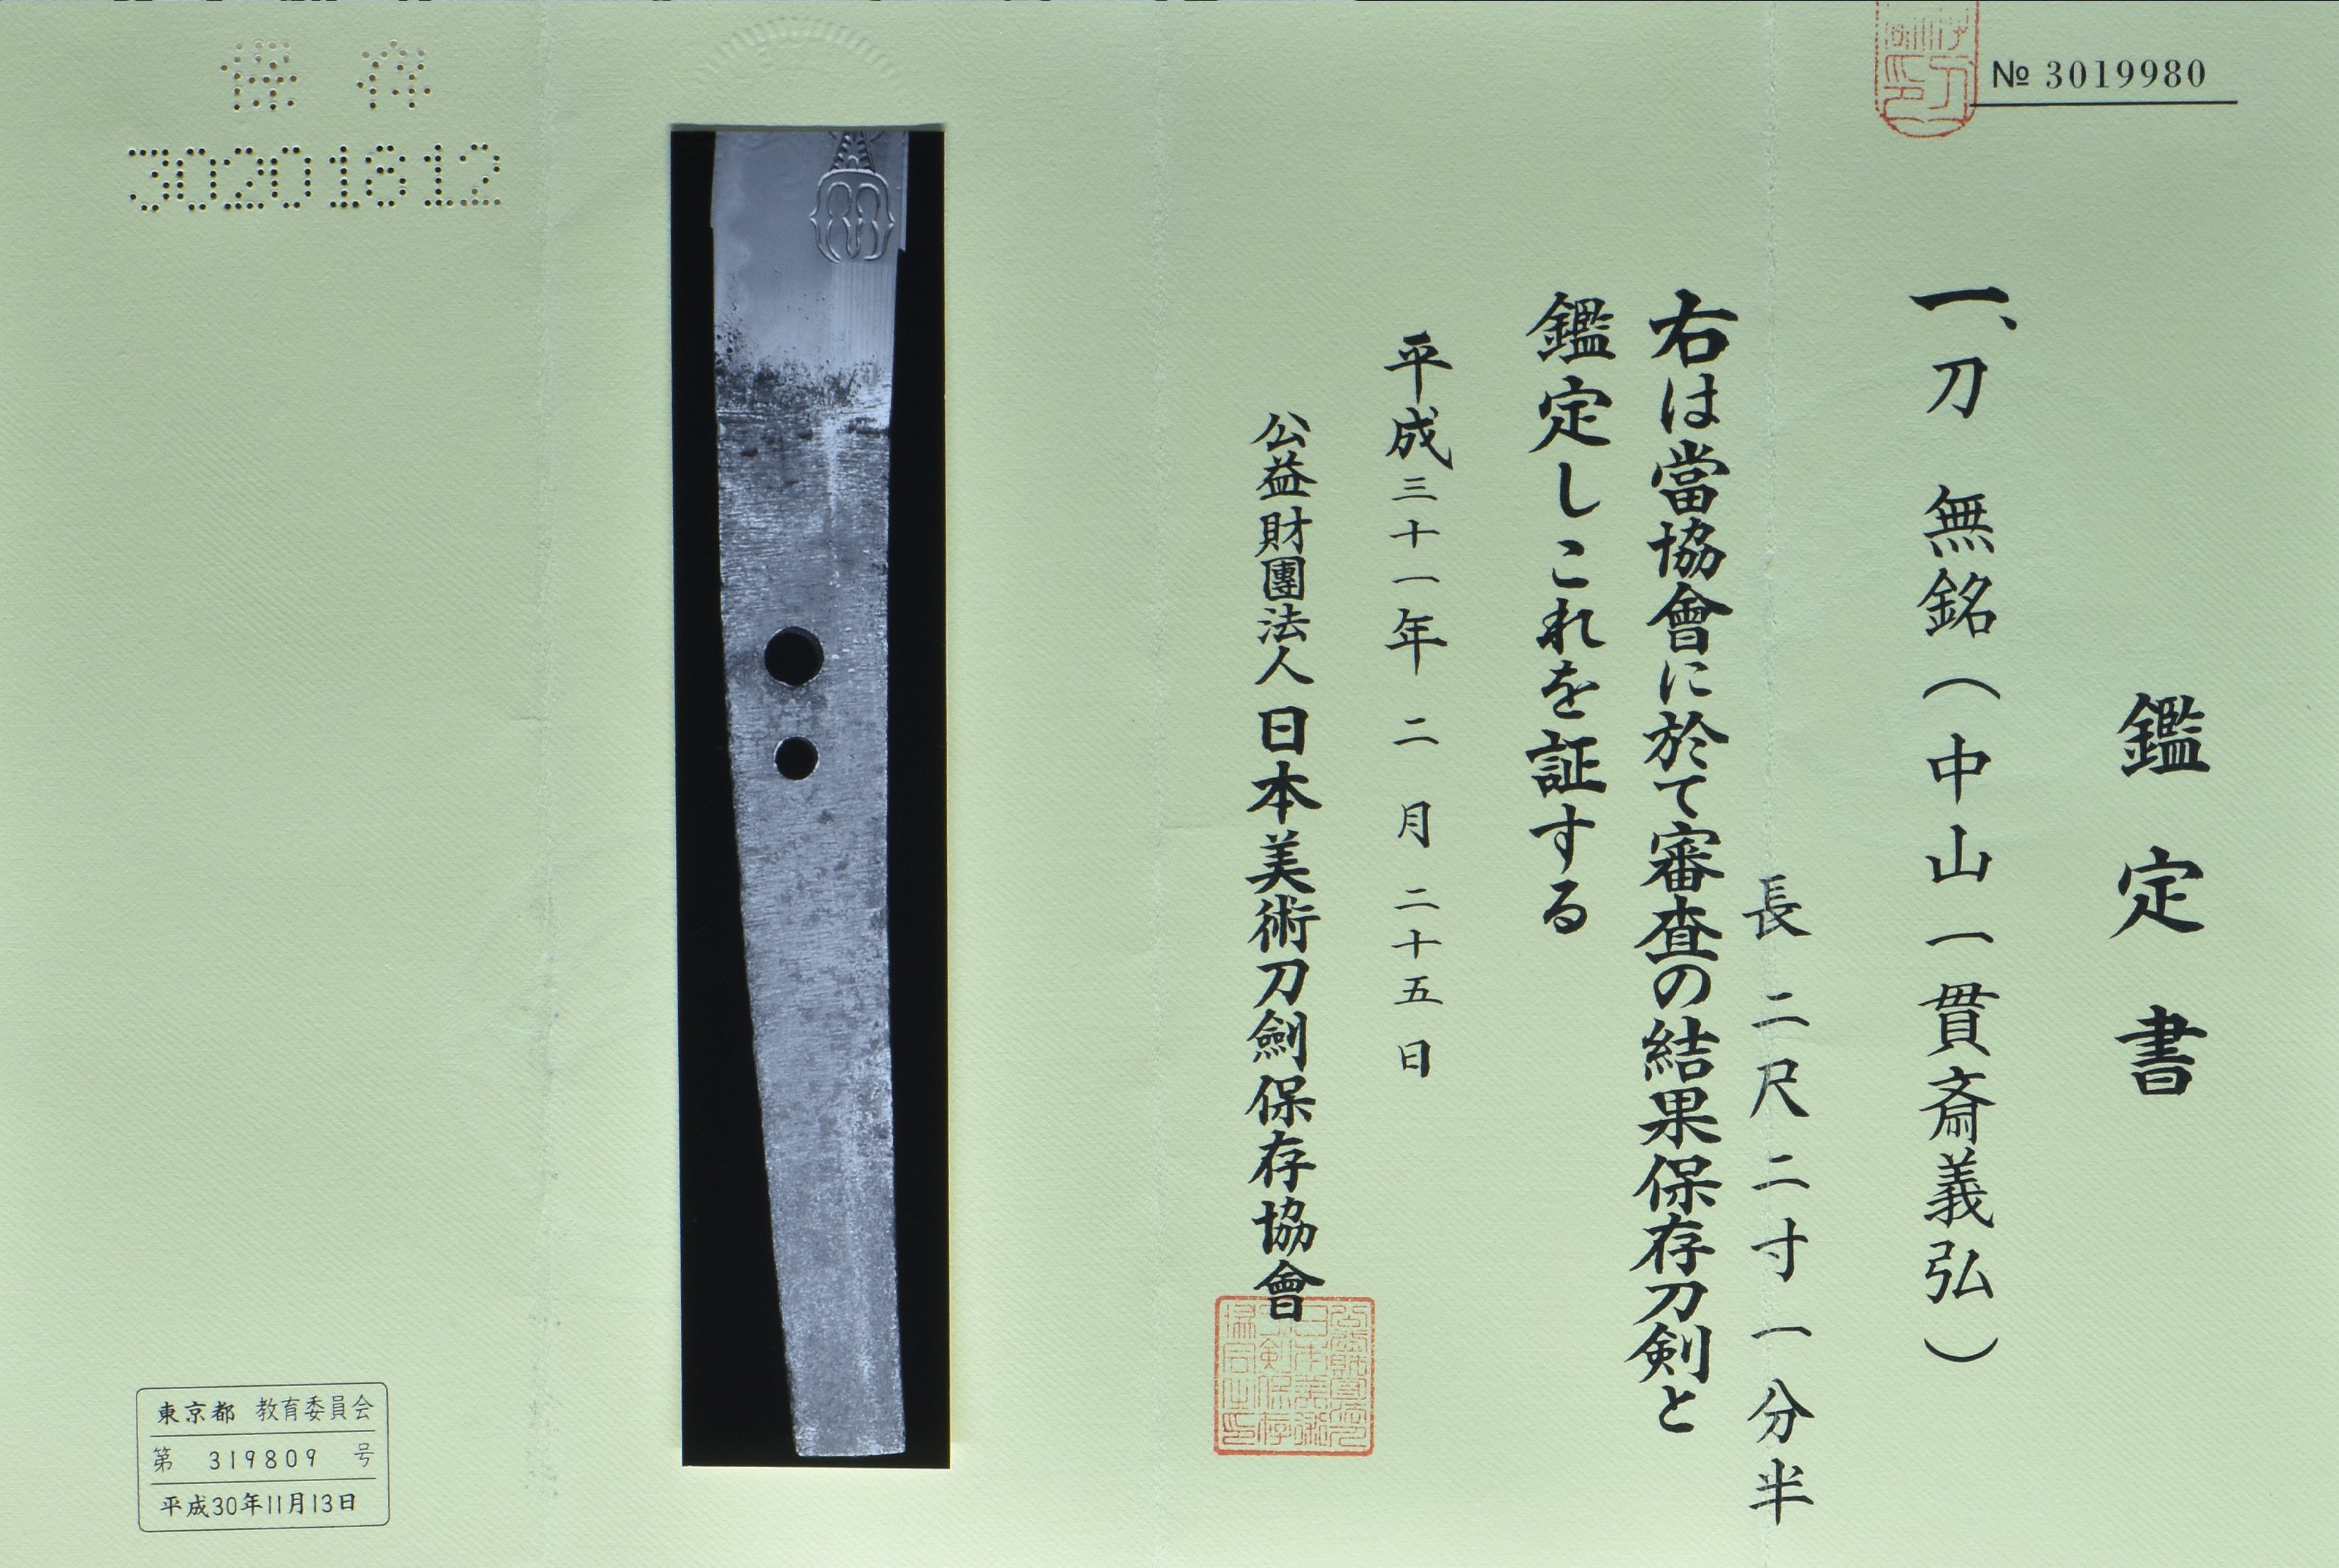 № 3019980
鑑定書
一、刀 無銘（中山一貫斎義弘）
長 二尺二寸一分半
右は當協會に於て審査の結果保存刀剣と
鑑定しこれを証する
平成三十一年 二月 二十五日
公益財團法人 日本美術刀劍保存協會
保存
30201812
東京都 教育委員会
第 319809 号
平成30年11月13日